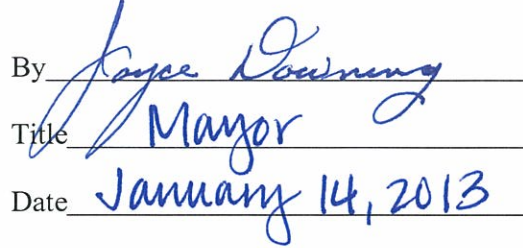 By Joyce Downing
Title Mayor
Date January 14, 2013